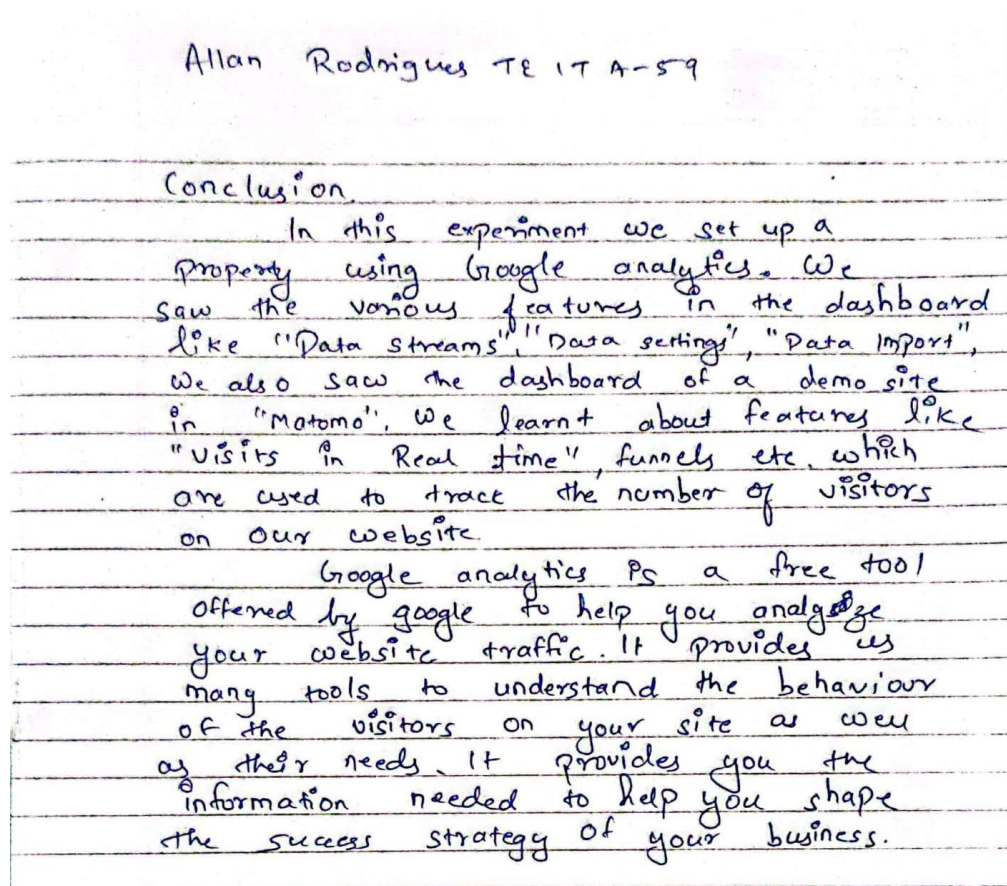 Allan Rodrigues TE IT A-59
Conclusion.
In this experiment we set up a
property using Google analytics. We
saw the various features in the dashboard
like "Data streams", "Data settings", "Data Import",
We also saw the dashboard of a demo site
in "Matomo". We learnt about features like
"Visits in Real time", funnels etc. which
are used to track the number of visitors
on our website.
Google analytics is a free tool
offered by google to help you analyze
your website traffic. It provides us
many tools to understand the behaviour
of the visitors on your site as well
as their needs. It provides you the
information needed to help you shape
the success strategy of your business.